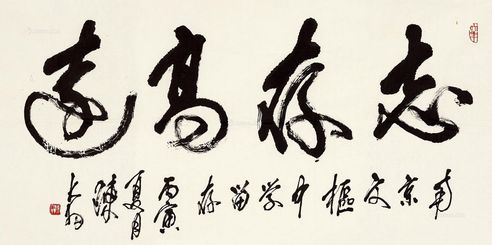 志存高遠
南京文樞中学留存丙寅夏月陳大羽